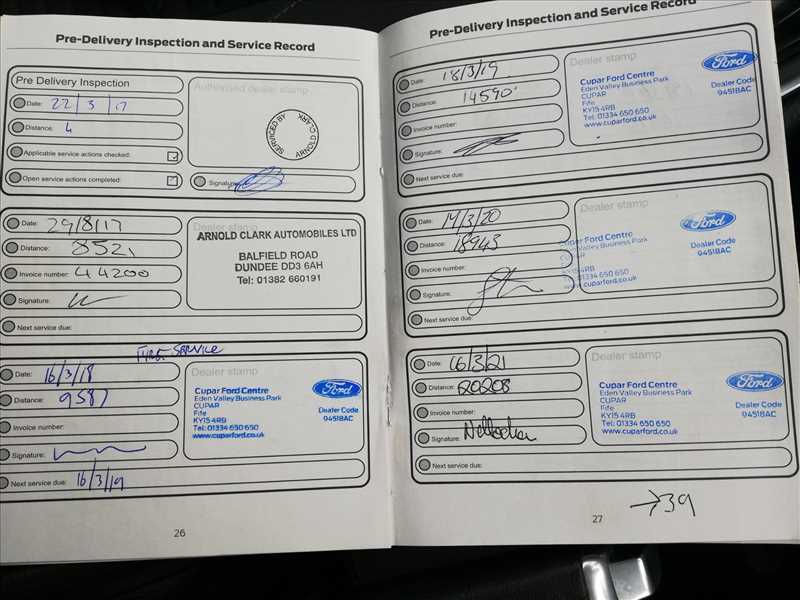 Pre-Delivery Inspection and Service Record
Pre Delivery Inspection
Date: 22/3/17
Distance: 4
Applicable service actions checked:
Open service actions completed:
Authorised dealer stamp
ARNOLD CLARK
SERVICED BY
Signature:
Date: 29/8/17
Distance: 8521
Invoice number: 44200
Signature:
Next service due:
Dealer stamp
ARNOLD CLARK AUTOMOBILES LTD
BALFIELD ROAD
DUNDEE DD3 6AH
Tel: 01382 660191
SERVICE
Date: 16/3/18
Distance: 9587
Invoice number:
Signature:
Next service due: 16/3/19
Dealer stamp
Cupar Ford Centre
Eden Valley Business Park
CUPAR
Fife
KY15 4RB
Tel: 01334 650 650
www.cuparford.co.uk
Ford
Dealer Code
94518AC
26
Pre-Delivery Inspection and Service Record
Date: 18/3/19
Distance: 14590
Invoice number:
Signature:
Next service due:
Dealer stamp
Cupar Ford Centre
Eden Valley Business Park
CUPAR
Fife
KY15 4RB
Tel: 01334 650 650
www.cuparford.co.uk
Ford
Dealer Code
94518AC
Date: 17/3/20
Distance: 18943
Invoice number:
Signature:
Next service due:
Dealer stamp
Cupar Ford Centre
Eden Valley Business Park
CUPAR
Fife
KY15 4RB
Tel: 01334 650 650
www.cuparford.co.uk
Ford
Dealer Code
94518AC
Date: 16/3/21
Distance: 20208
Invoice number:
Signature:
Next service due:
Dealer stamp
Cupar Ford Centre
Eden Valley Business Park
CUPAR
Fife
KY15 4RB
Tel: 01334 650 650
www.cuparford.co.uk
Ford
Dealer Code
94518AC
→39
27